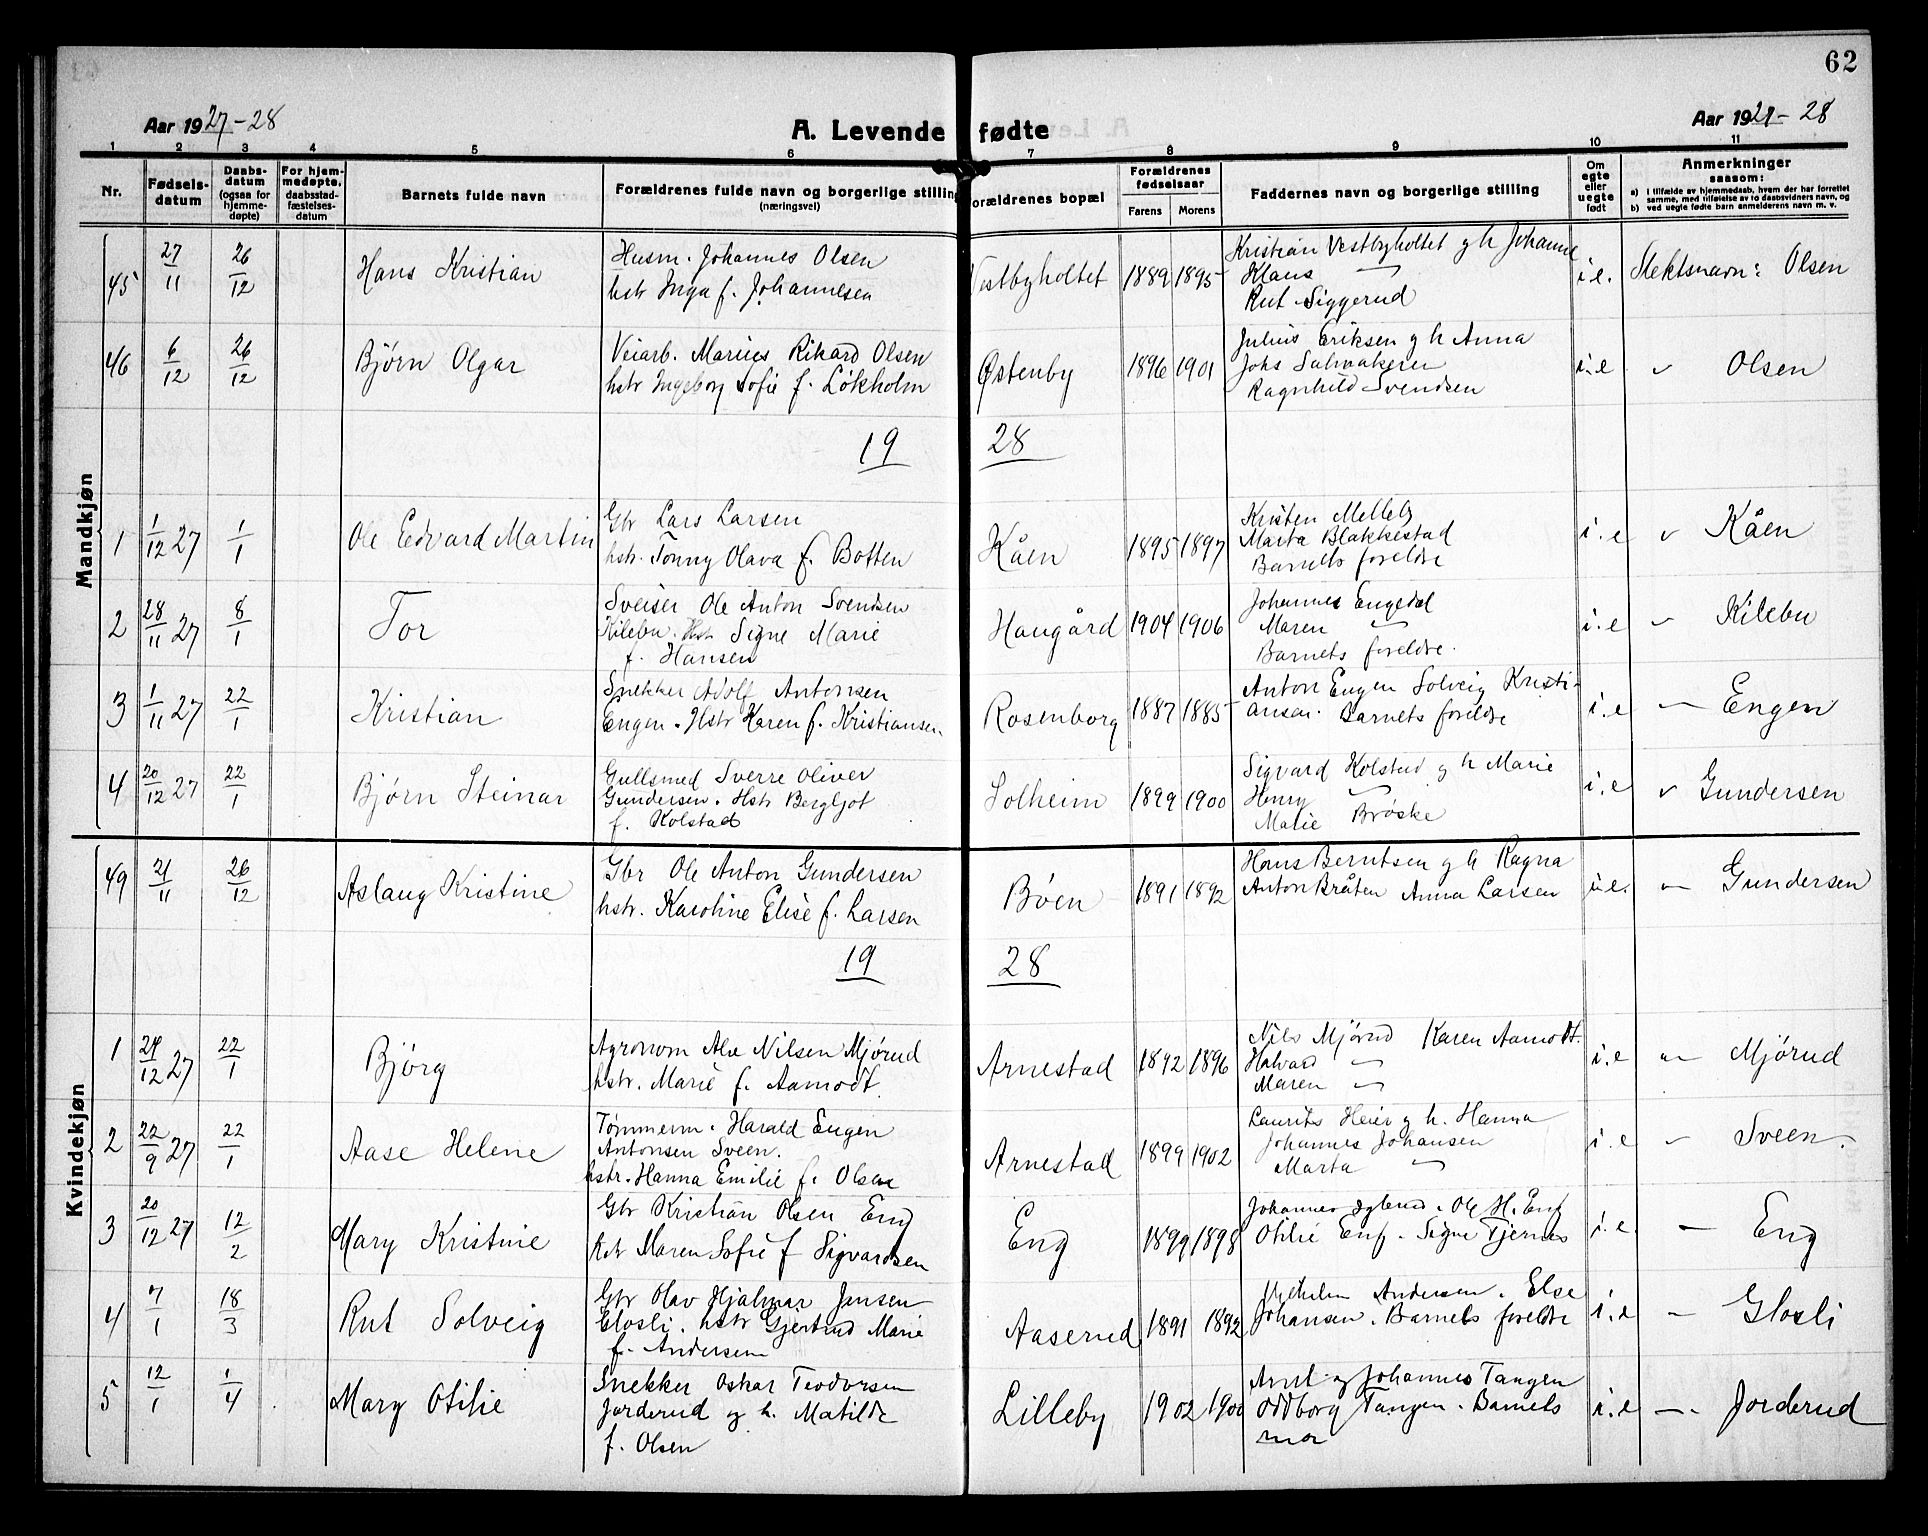 62
Aar 1927-28
A. Levende fødte
Aar 1927-28
1 2 3 4 5 6 7 8 9 10 11
Nr.
Fødsels-
datum
Daabs-
datum
(ogsaa for
hjemme-
døpte)
For hjem-
medøpte,
daabsstad-
fæstelses-
datum
Barnets fulde navn
Forældrenes fulde navn og borgerlige stilling
(næringsvei)
Forældrenes bopæl
Forældrenes
fødselsaar
Farens Morens
Faddernes navn og borgerlige stilling
Om
egte
eller
uegte
født
Anmerkninger
saasom:
a) I tilfælde av hjemmedaab, hvem der har forrettet
samme, med tilføielse av to daabsvidners navn, og
b) ved uegte fødte barn anmelderens navn m. v.
Mandkjøn
45 27/11 26/12 Hans Kristian
Husm. Johannes Olsen
hstr Inga f. Johannesen
Vestbyholtet 1889 1895
Kristian Vestbyholtet g h Johanne
Klaus —
Rut Siggerud
i.e. Slektsnavn: Olsen
46 6/12 26/12 Bjørn Olgar
Veiarb. Marius Rikard Olsen
hstr Ingeborg Sofie f. Løkholm
Østenby 1896 1901
Julius Eriksen g h Anna
Johs
Ragnhild Svendsen
i.e " Olsen
19 28
1 1/12 27 1/1 Ole Edvard Martin
Gbr Lars Larsen
hstr. Tonny Olava f. Botten
Kåen 1895 1897
Kristen Melleby
Marta Blakkestad
Barnets foreldre
i.e " Kåen
2 28/11 27 8/1 Tor
Sveiser Ole Anton Svendsen
Kilebu. Hstr Signe Marie
f. Hansen
Haugård 1904 1906
Johannes Engedal
Maren —
Barnets foreldre.
i.e " Kilebu
3 1/11 27 22/1 Kristian
Snekker Adolf Antonsen
Engen. Hstr Karen f. Kristiansen
Rosenborg 1887 1885
Anton Engen Solveig Kristi-
ansen. Barnets foreldre
i.e — Engen
4 20/12 27 22/1 Bjørn Steinar
Gullsmed Sverre Oliver
Gundersen. Hstr Bergljot
f. Kolstad
Solheim 1899 1900
Sigvard Kolstad g h Marie
Henry —
Marie Brøske
i.e " Gundersen
Kvindekjøn
49 21/11 26/12 Aslaug Kristine
Gbr Ole Anton Gundersen
hstr. Karoline Elise f. Larsen
Bøen 1891 1892
Hans Berntsen g h Ragna
Anton Bråten Anna Larsen
i.e. — Gundersen
19 28
1 24/12 27 22/1 Bjørg
Agronom Alv Nilsen Mjørud
hstr. Marie f. Aamodt.
Arnestad 1892 1896
Nils Mjørud Karen Aamodt.
Halvard —
Maren —
i.e — Mjørud
2 22/9 27 22/1 Aase Helene
Tømmerm. Harald Engen
Antonsen Sveen.
hstr. Hanna Emilie f. Olsen
Arnestad 1899 1902
Laurits Heier g h. Hanna
Johannes Johansen
Marta —
i.e — Sveen.
3 20/12 27 12/2 Mary Kristine
Gbr Kristian Olsen Eng
hstr Maren Sofie f Sigvardsen
Eng 1899 1898
Johannes Ole H. Eng
Otilie Eng. Signe Tjernes
i.e. — Eng
4 7/1 18/3 Rut Solveig
Gbr Olav Hjalmar Jensen
Glosli. hstr Gjertrud Marie
f. Andersen
Aaserud 1891 1892
Vilhelm Andersen. Else
Johansen. Barnets foreldre
i.e — Glosli
5 12/1 1/4 Mary Otilie
Snekker Oskar Teodorsen
Jorderud og h. Matilde
f. Olsen
Lilleby 1902 1900
Arnt og Johannes Tangen
Oddborg Tangen. Barnets
mor
i.e — Jorderud